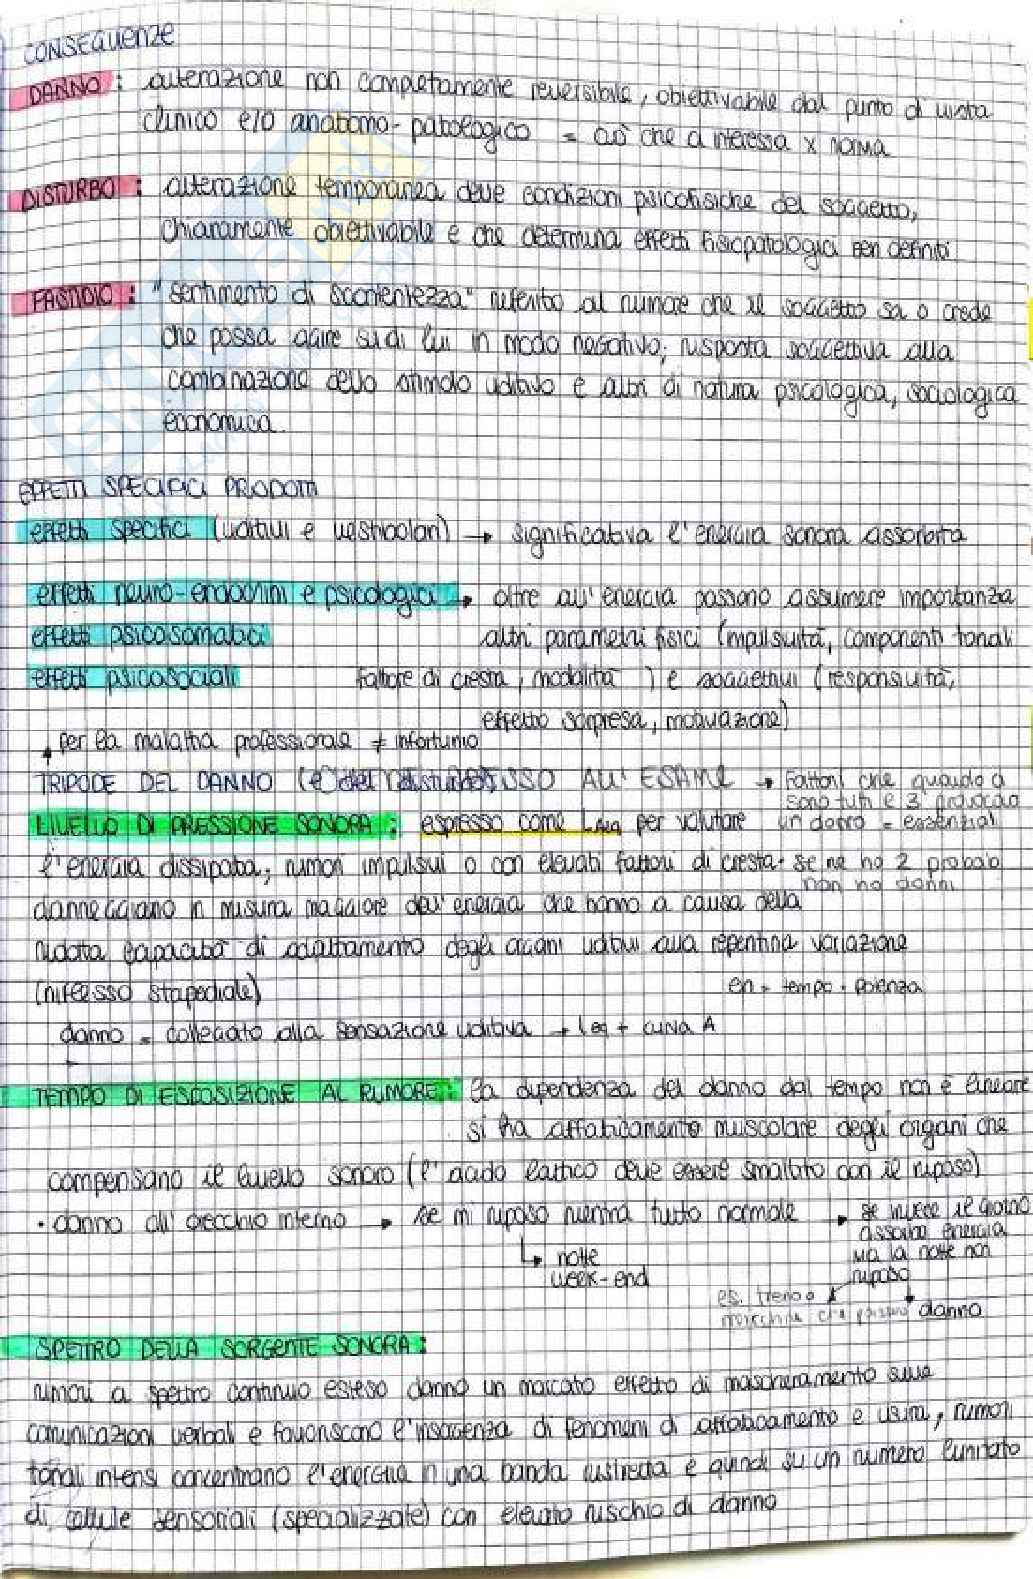 CONSEGUENZE
DANNO : alterazione non completamente reversibile, obiettivabile dal punto di vista
clinico e/o anatomo-patologico = ciò che ci interessa x norma
DISTURBO : alterazione temporanea delle condizioni psicofisiche del soggetto,
chiaramente obiettivabile e che determina effetti fisiopatologici ben definiti
FASTIDIO : "sentimento di scontentezza" riferito al rumore che il soggetto sa o crede
che possa agire su di lui in modo negativo; risposta soggettiva alla
combinazione dello stimolo uditivo e altri di natura psicologica, sociologica
economica.
EFFETTI SPECIFICI PRODOTTI
effetti specifici (uditivi e vestibolari) → significativa l'energia sonora assorbita
effetti neuro-endocrini e psicologici → oltre all'energia possono assumere importanza
effetti psicosomatici altri parametri fisici (impulsività, componenti tonali
effetti psicosociali fattore di cresta, modalità ) e soggettivi (responsività,
effetto sorpresa, motivazione)
per la malattia professionale ≠ infortunio
TRIPODE DEL DANNO (e del disturbo) ALL'ESAME → Fattori che quando ci
sono tutti e 3 provocano
LIVELLO DI PRESSIONE SONORA : espresso come LAeq per valutare un danno = essenziali
l'energia dissipata; rumori impulsivi o con elevati fattori di cresta · se ne ho 2 probab
non ho danni
danneggiano in misura maggiore dell'energia che hanno a causa della
ridotta capacità di adattamento degli organi uditivi alla repentina variazione
(riflesso stapediale) en = tempo · potenza
danno = collegato alla sensazione uditiva → Leq + curva A
TEMPO DI ESPOSIZIONE AL RUMORE : la dipendenza del danno dal tempo non è lineare
si ha affaticamento muscolare degli organi che
compensano il livello sonoro (l'acido lattico deve essere smaltito con il riposo)
· danno all'orecchio interno → se mi riposo rientra tutto normale → se invece il giorno
assorbo energia
↳ notte ma la notte non
week-end riposo
es. treno o
macchine che passano danno
SPETTRO DELLA SORGENTE SONORA :
rumori a spettro continuo esteso danno un marcato effetto di mascheramento sulle
comunicazioni verbali e favoriscono l'insorgenza di fenomeni di affaticamento e usura, rumori
tonali intensi concentrano l'energia in una banda ristretta e quindi su un numero limitato
di cellule sensoriali (specializzate) con elevato rischio di danno